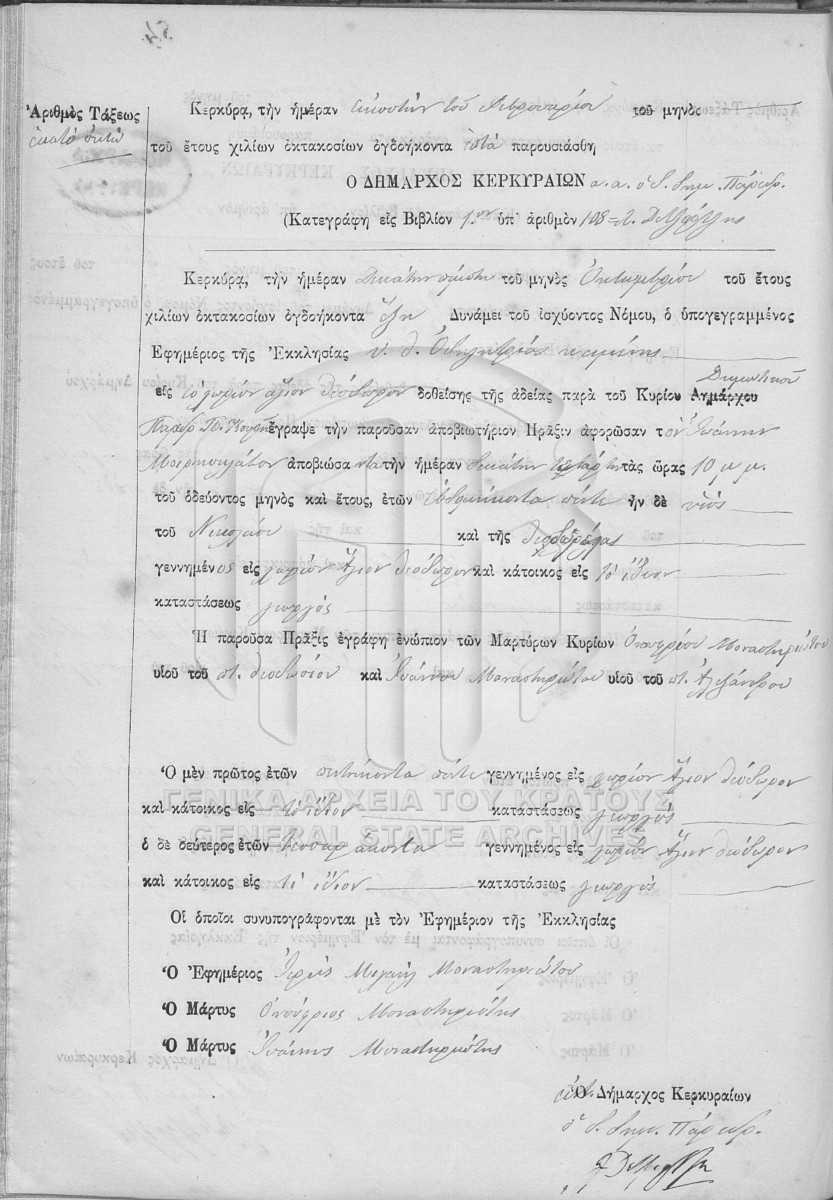 54
Ἀριθμὸς Τάξεως
ἑκατὸ ὀκτώ
Κερκύρα, τὴν ἡμέραν εἰκοστὴν τοῦ Φεβρουαρίου τοῦ μηνὸς
τοῦ ἔτους χιλίων ὀκτακοσίων ὀγδοήκοντα ἑπτὰ παρουσιάσθη
Ο ΔΗΜΑΡΧΟΣ ΚΕΡΚΥΡΑΙΩΝ α. α. ὁ δημ. Πάρεδρ.
(Κατεγράφη εἰς Βιβλίον 1.ον ὑπ' ἀριθμὸν 108
Κερκύρα, τὴν ἡμέραν Δεκάτην πέμπτην τοῦ μηνὸς Ὀκτωμβρίου τοῦ ἔτους
χιλίων ὀκτακοσίων ὀγδοήκοντα ἕξη Δυνάμει τοῦ ἰσχύοντος Νόμου, ὁ ὑπογεγραμμένος
Ἐφημέριος τῆς Ἐκκλησίας υ. θ. Ὁδηγητρίας
εἰς τὸ χωρίον ἅγιον Θεόδωρον δοθείσης τῆς ἀδείας παρὰ τοῦ Κυρίου Δημάρχου Δημοτικοῦ
Παρέδρ. ἔγραψε τὴν παροῦσαν ἀποβιωτήριον Πρᾶξιν ἀφορῶσαν τὸν Ἰωάννην
ἀποβιώσαντα τὴν ἡμέραν δεκάτην τετάρτην τὰς ὥρας 10 μ μ.
τοῦ ὁδεύοντος μηνὸς καὶ ἔτους, ἐτῶν ἑβδομήκοντα πέντε ἦν δὲ υἱὸς
τοῦ Νικολάου καὶ τῆς
γεννημένος εἰς χωρίον Ἅγιον Θεόδωρον καὶ κάτοικος εἰς τὸ ἴδιον
καταστάσεως γεωργὸς
Ἡ παροῦσα Πρᾶξις ἐγράφη ἐνώπιον τῶν Μαρτύρων Κυρίων Ὀνουφρίου Μοναστηριώτου
υἱοῦ τοῦ π. Θεοδωσίου καὶ Ἰωάννου Μοναστηριώτου υἱοῦ τοῦ π. Ἀλεξάνδρου
Ὁ μὲν πρῶτος ἐτῶν πεντήκοντα πέντε γεννημένος εἰς χωρίον Ἅγιον Θεόδωρον
καὶ κάτοικος εἰς τὸ ἴδιον καταστάσεως γεωργὸς
ΓΕΝΙΚΑ ΑΡΧΕΙΑ ΤΟΥ ΚΡΑΤΟΥΣ
GENERAL STATE ARCHIVES
ὁ δὲ δεύτερος ἐτῶν τεσσαράκοντα γεννημένος εἰς χωρίον Ἅγιον Θεόδωρον
καὶ κάτοικος εἰς τὸ ἴδιον καταστάσεως γεωργὸς
Οἱ ὁποῖοι συνυπογράφονται μὲ τὸν Ἐφημέριον τῆς Ἐκκλησίας
Ὁ Ἐφημέριος Ἱερεὺς Μιχαὴλ Μοναστηριώτου
Ὁ Μάρτυς Ὀνούφριος Μοναστηριώτης
Ὁ Μάρτυς Ἰωάννης Μοναστηριώτης
Ὁ Δήμαρχος Κερκυραίων
ὁ δημ. Πάρεδρ.